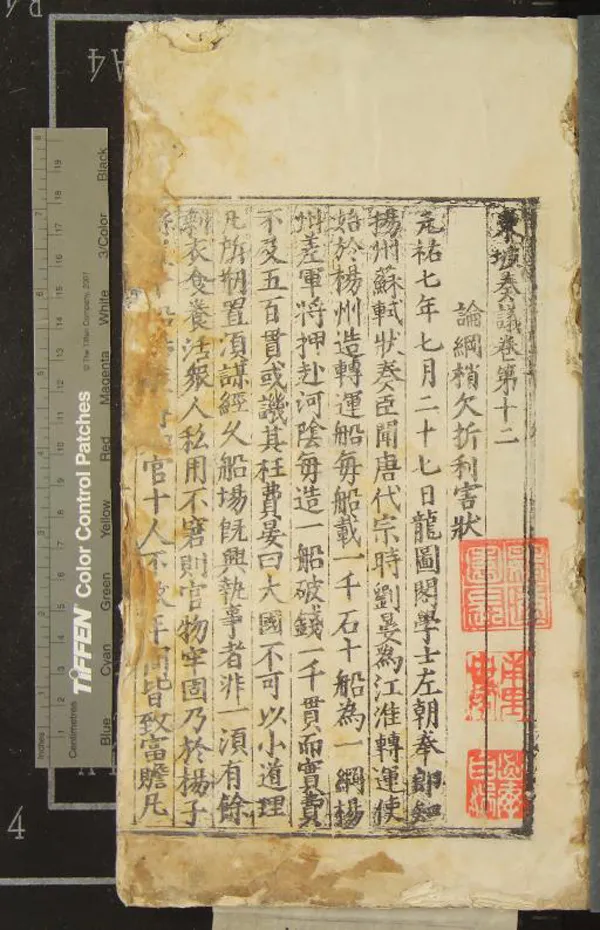 東坡奏議卷第十二
論綱梢欠折利害狀
元祐七年七月二十七日龍圖閣學士左朝奉郎知
揚州蘇軾狀奏臣聞唐代宗時劉晏爲江淮轉運使
始於楊州造轉運船每船載一千石十船為一綱楊
州差軍將押赴河陰每造一船破錢一千貫而實費
不及五百貫或譏其枉費晏曰大國不可以小道理
凡所剏置須謀經久船場旣興執事者非一須有餘
剩衣食養活衆人私用不窘則官物牢固乃於楊子
縣十船官十人不數年間皆致富贍凡
A4
4
TIFFEN Color Control Patches
© The Tiffen Company, 2007
Blue Cyan Green Yellow Red Magenta White 3/Color Black
Inches 1 2 3 4 5 6 7 8
Centimetres 1 2 3 4 5 6 7 8 9 10 11 12 13 14 15 16 17 18 19